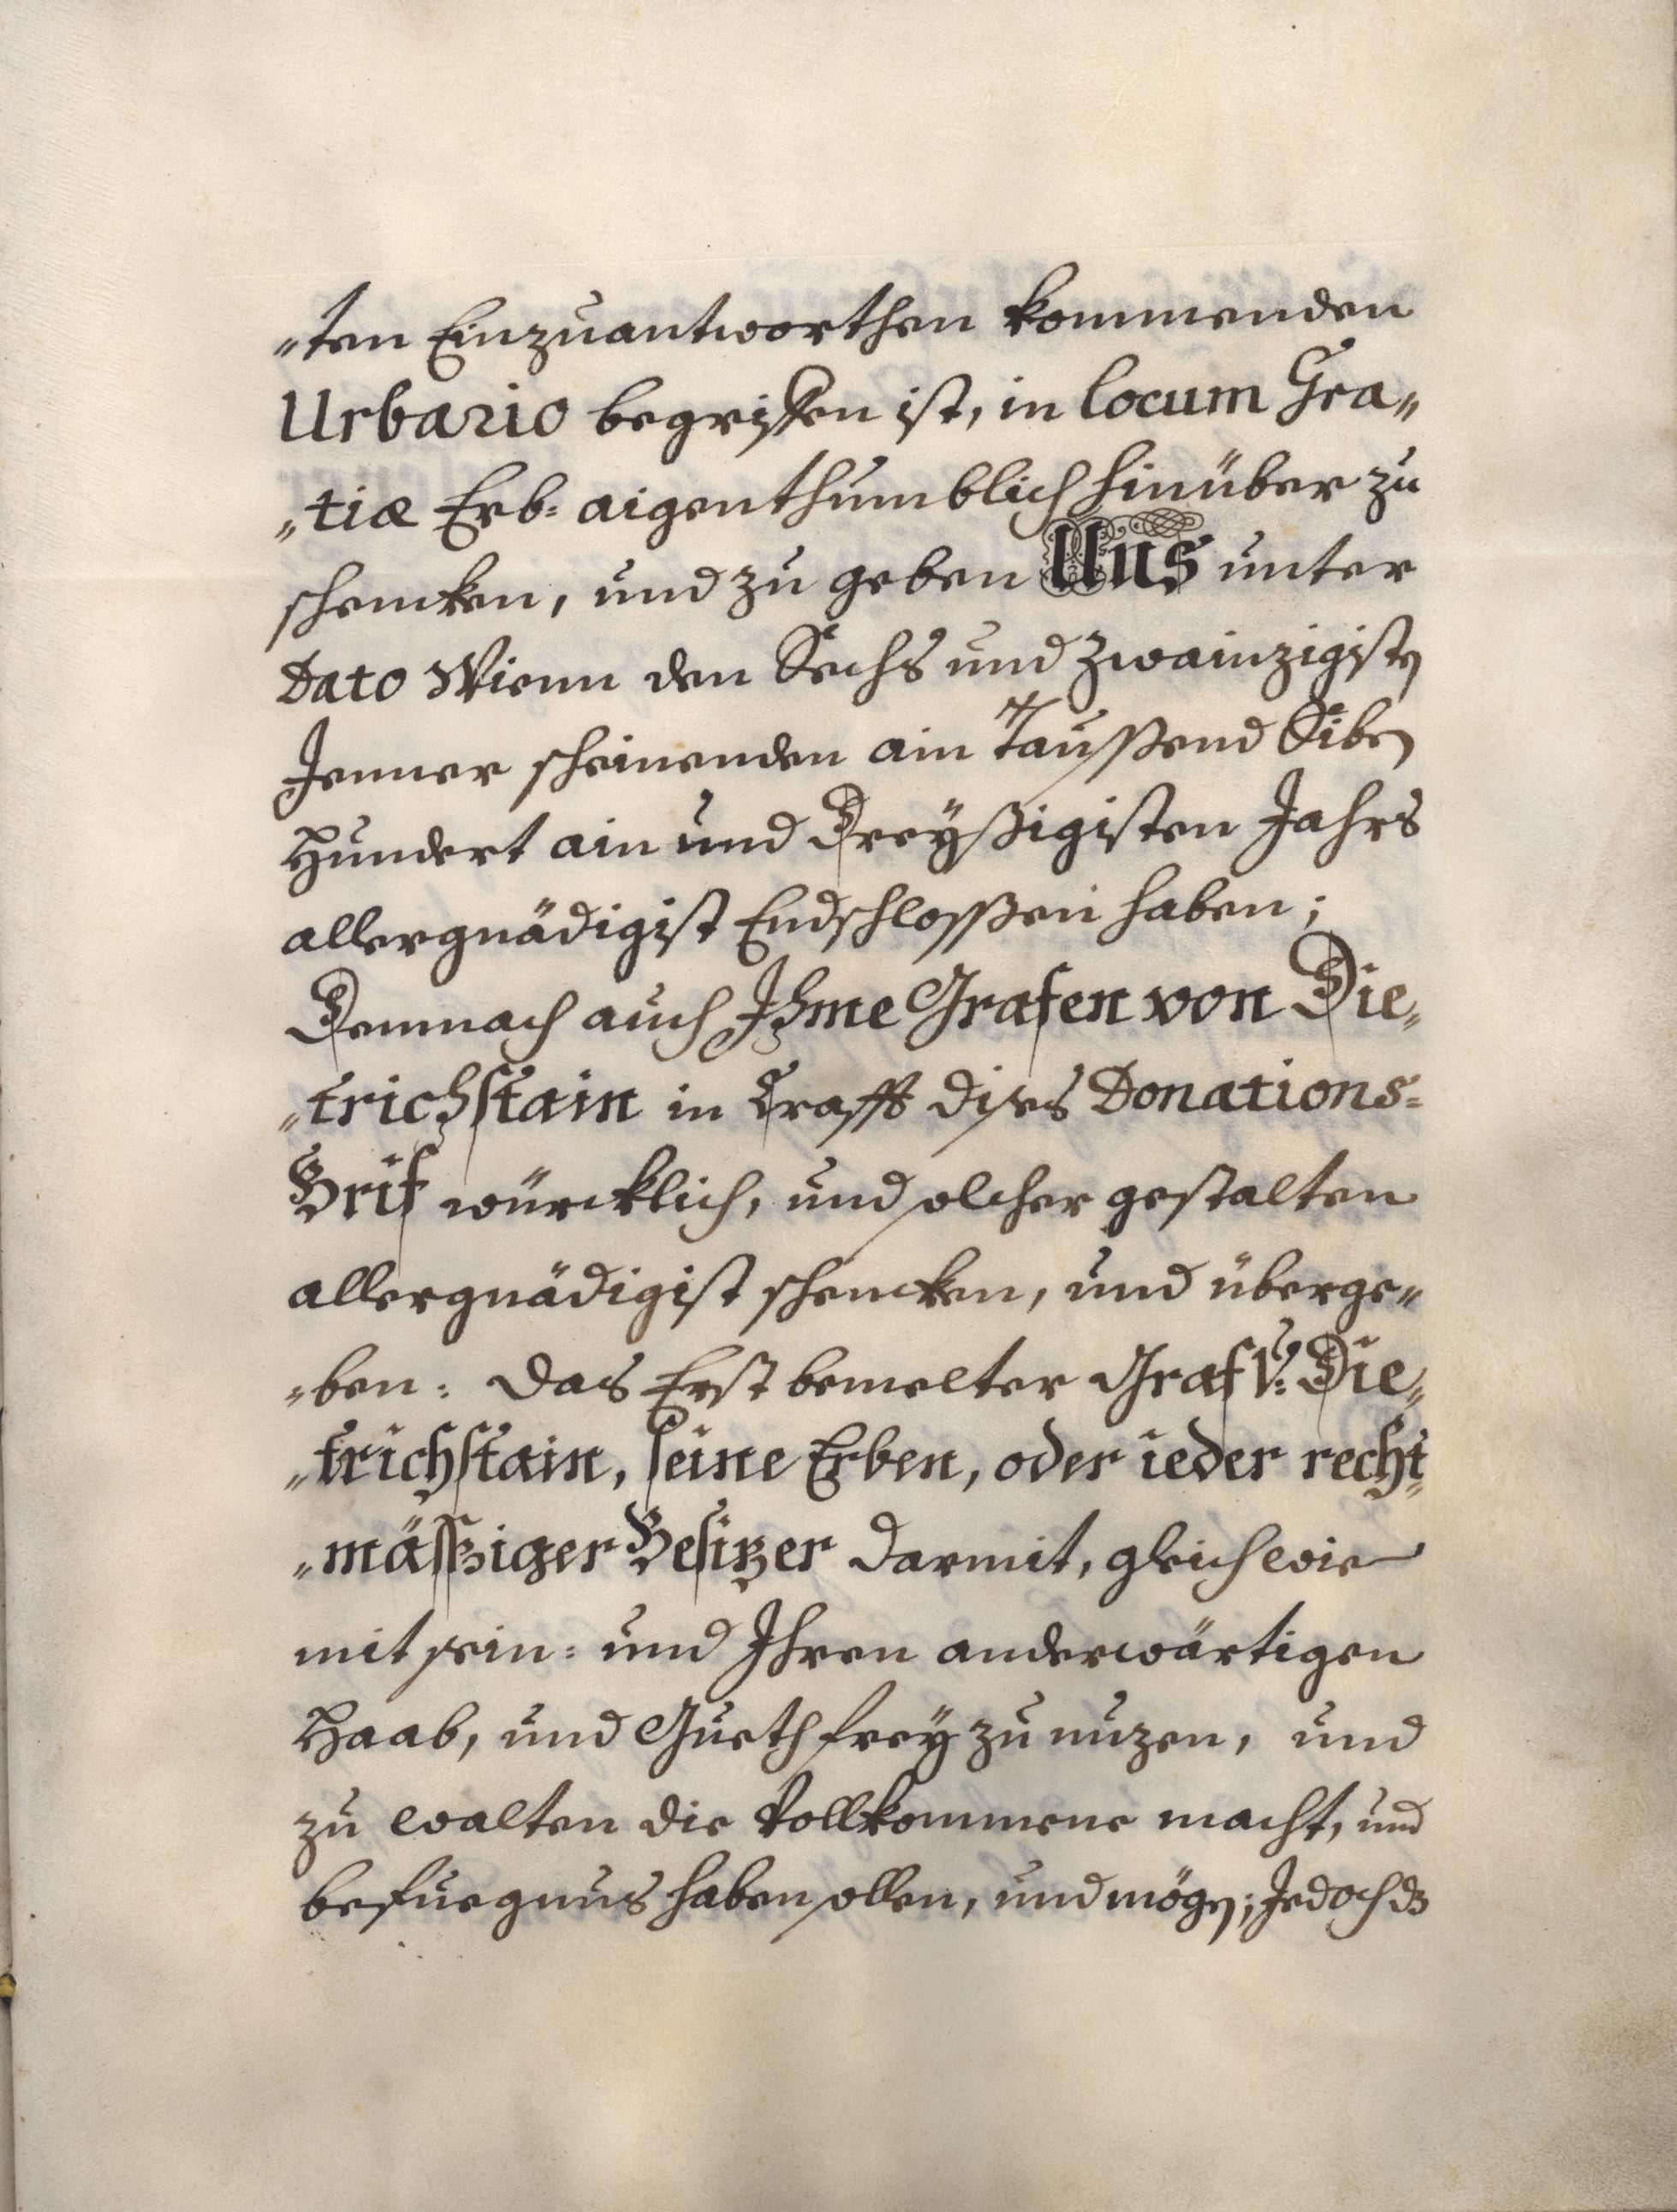 „ten Einzuantworthen kommenden
Urbario begriffen ist, in locum Gra„
„tiæ Erb= aigenthumblich hinüber zu
schencken, und zu geben Uns unter
Dato Wienn den Sechs und zwainzigisten
Jenner scheinenden ain Taußend Siben
Hundert ain und Dreyßigisten Jahrs
allergnädigist Endschlossen haben;
Demnach auch Ihme Grafen von Die„
„trichstain in Crafft dises Donations=
Brif würcklich, und solcher gestalten
allergnädigist schencken, und überge„
„ben: das Erst bemelter Graf V: Die„
„trichstain, seine Erben, oder ieder recht„
„mässiger Besizer darmit, gleich wie
mit sein= und Ihren anderwärtigen
Haab, und Gueth frey zu nuzen, und
zu walten die Vollkommene macht, und
befuegnus haben sollen, und mögen; Jedoch dz